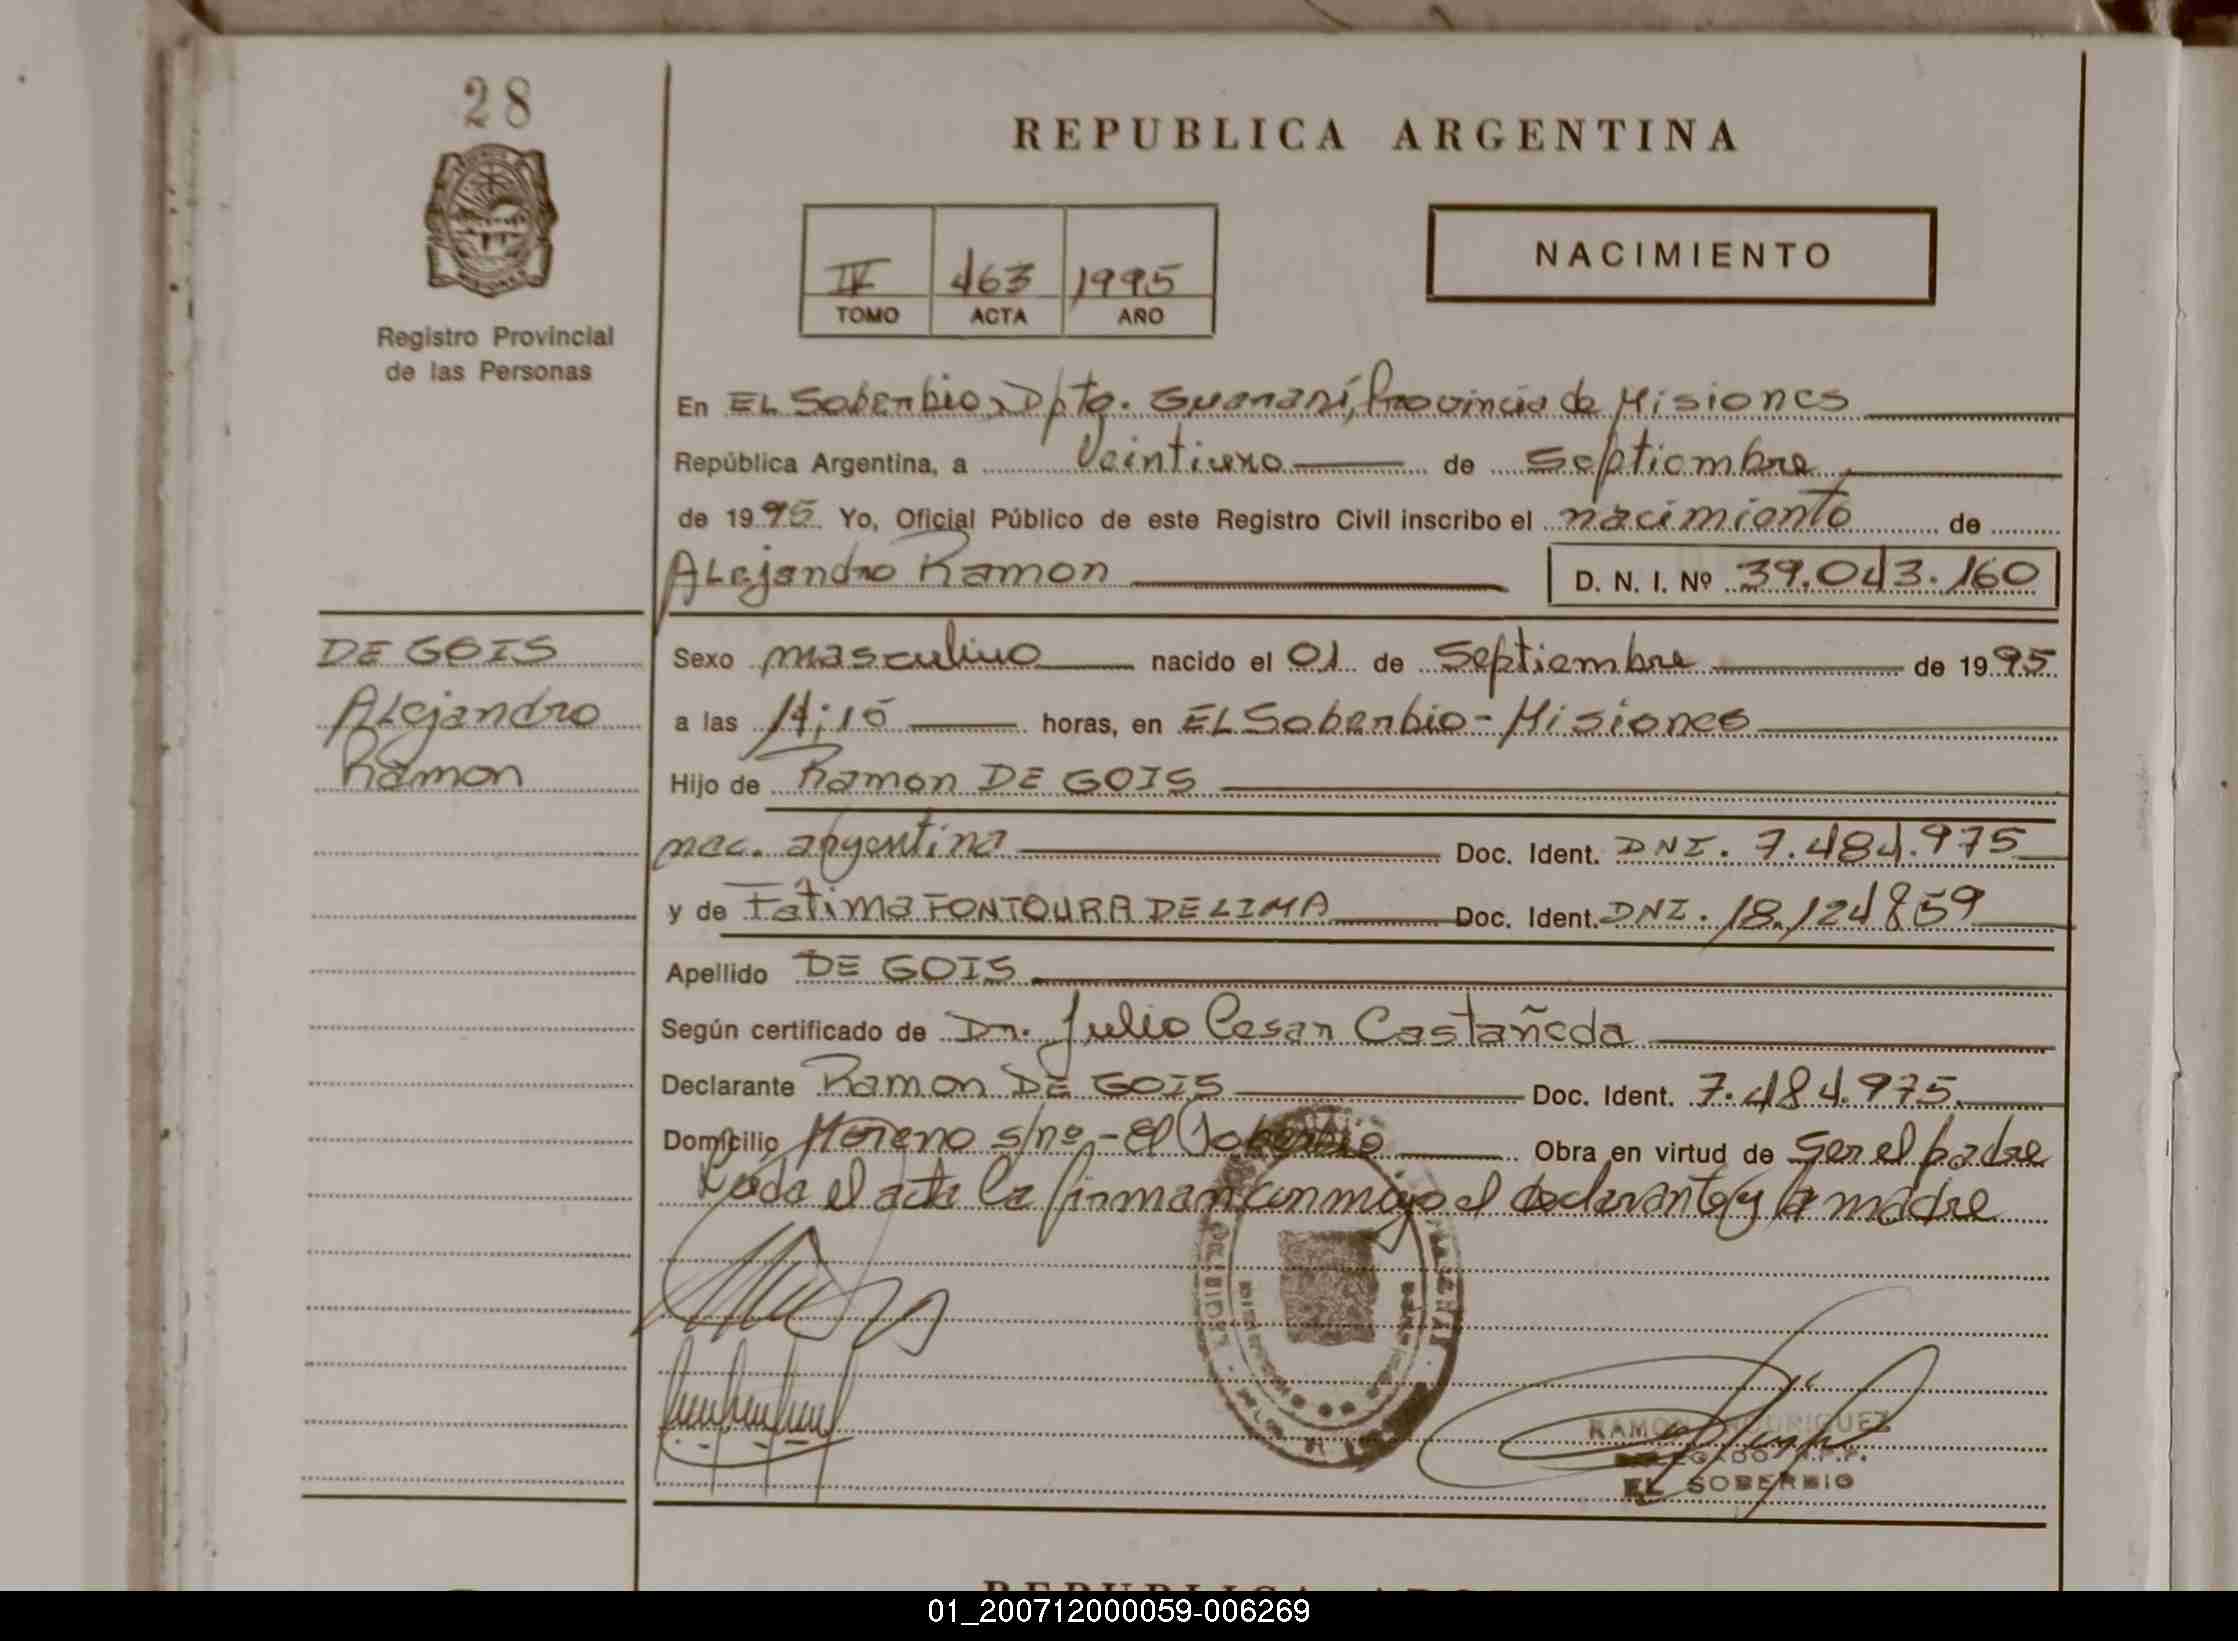 28
REPUBLICA ARGENTINA
IV 463 1995
TOMO ACTA AÑO
NACIMIENTO
Registro Provincial
de las Personas
En EL Soberbio, Dpto. Guaraní, Provincia de Misiones
República Argentina, a Veintiuno de Septiembre
de 1995 Yo, Oficial Público de este Registro Civil inscribo el nacimiento de
ALejandro Ramon D. N. I. Nº 39.043.160
DE GOIS
ALejandro
Ramon
Sexo masculino nacido el 01 de Septiembre de 1995
a las 14:15 horas, en EL Soberbio - Misiones
Hijo de Ramon DE GOIS
nac. argentina Doc. Ident. DNI. 7.484.975
y de Fatima FONTOURA DE LIMA Doc. Ident. DNI. 18.124859
Apellido DE GOIS
Según certificado de Dr. Julio Cesar Castañeda
Declarante Ramon DE GOIS Doc. Ident. 7.484.975.
Domicilio Moreno s/nº - El Soberbio Obra en virtud de ser el padre
Leida el acta la firman conmigo el declarante y la madre
RAMON RODRIGUEZ
DELEGADO R.P.P.
EL SOBERBIO
01_200712000059-006269